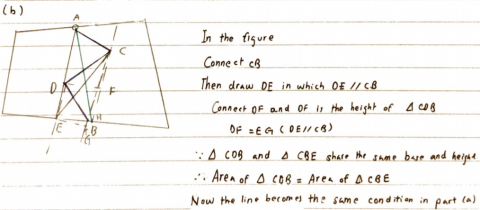 (b)
A
C
D
F
E
B
H
G
In the figure
Connect CB
Then draw DE in which DE // CB
Connect DF and DF is the height of △ CDB
DF = EG (DE // CB)
∵ △ CDB and △ CBE share the same base and height
∴ Area of △ CDB = Area of △ CBE
Now the line becomes the same condition in part (a)